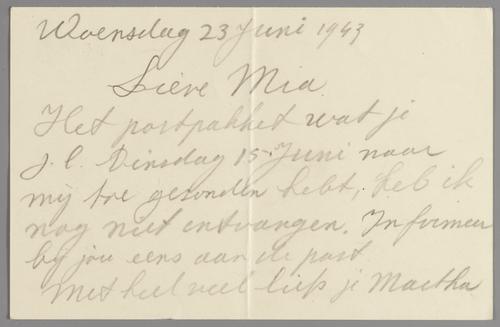 Woensdag 23 Juni 1943
Lieve Mia.
Het postpakket wat je
j.l. Dinsdag 15 Juni naar
mij toe gezonden hebt, heb ik
nog niet ontvangen. Informeer
bij jou eens aan de post
Met heel veel liefs je Martha